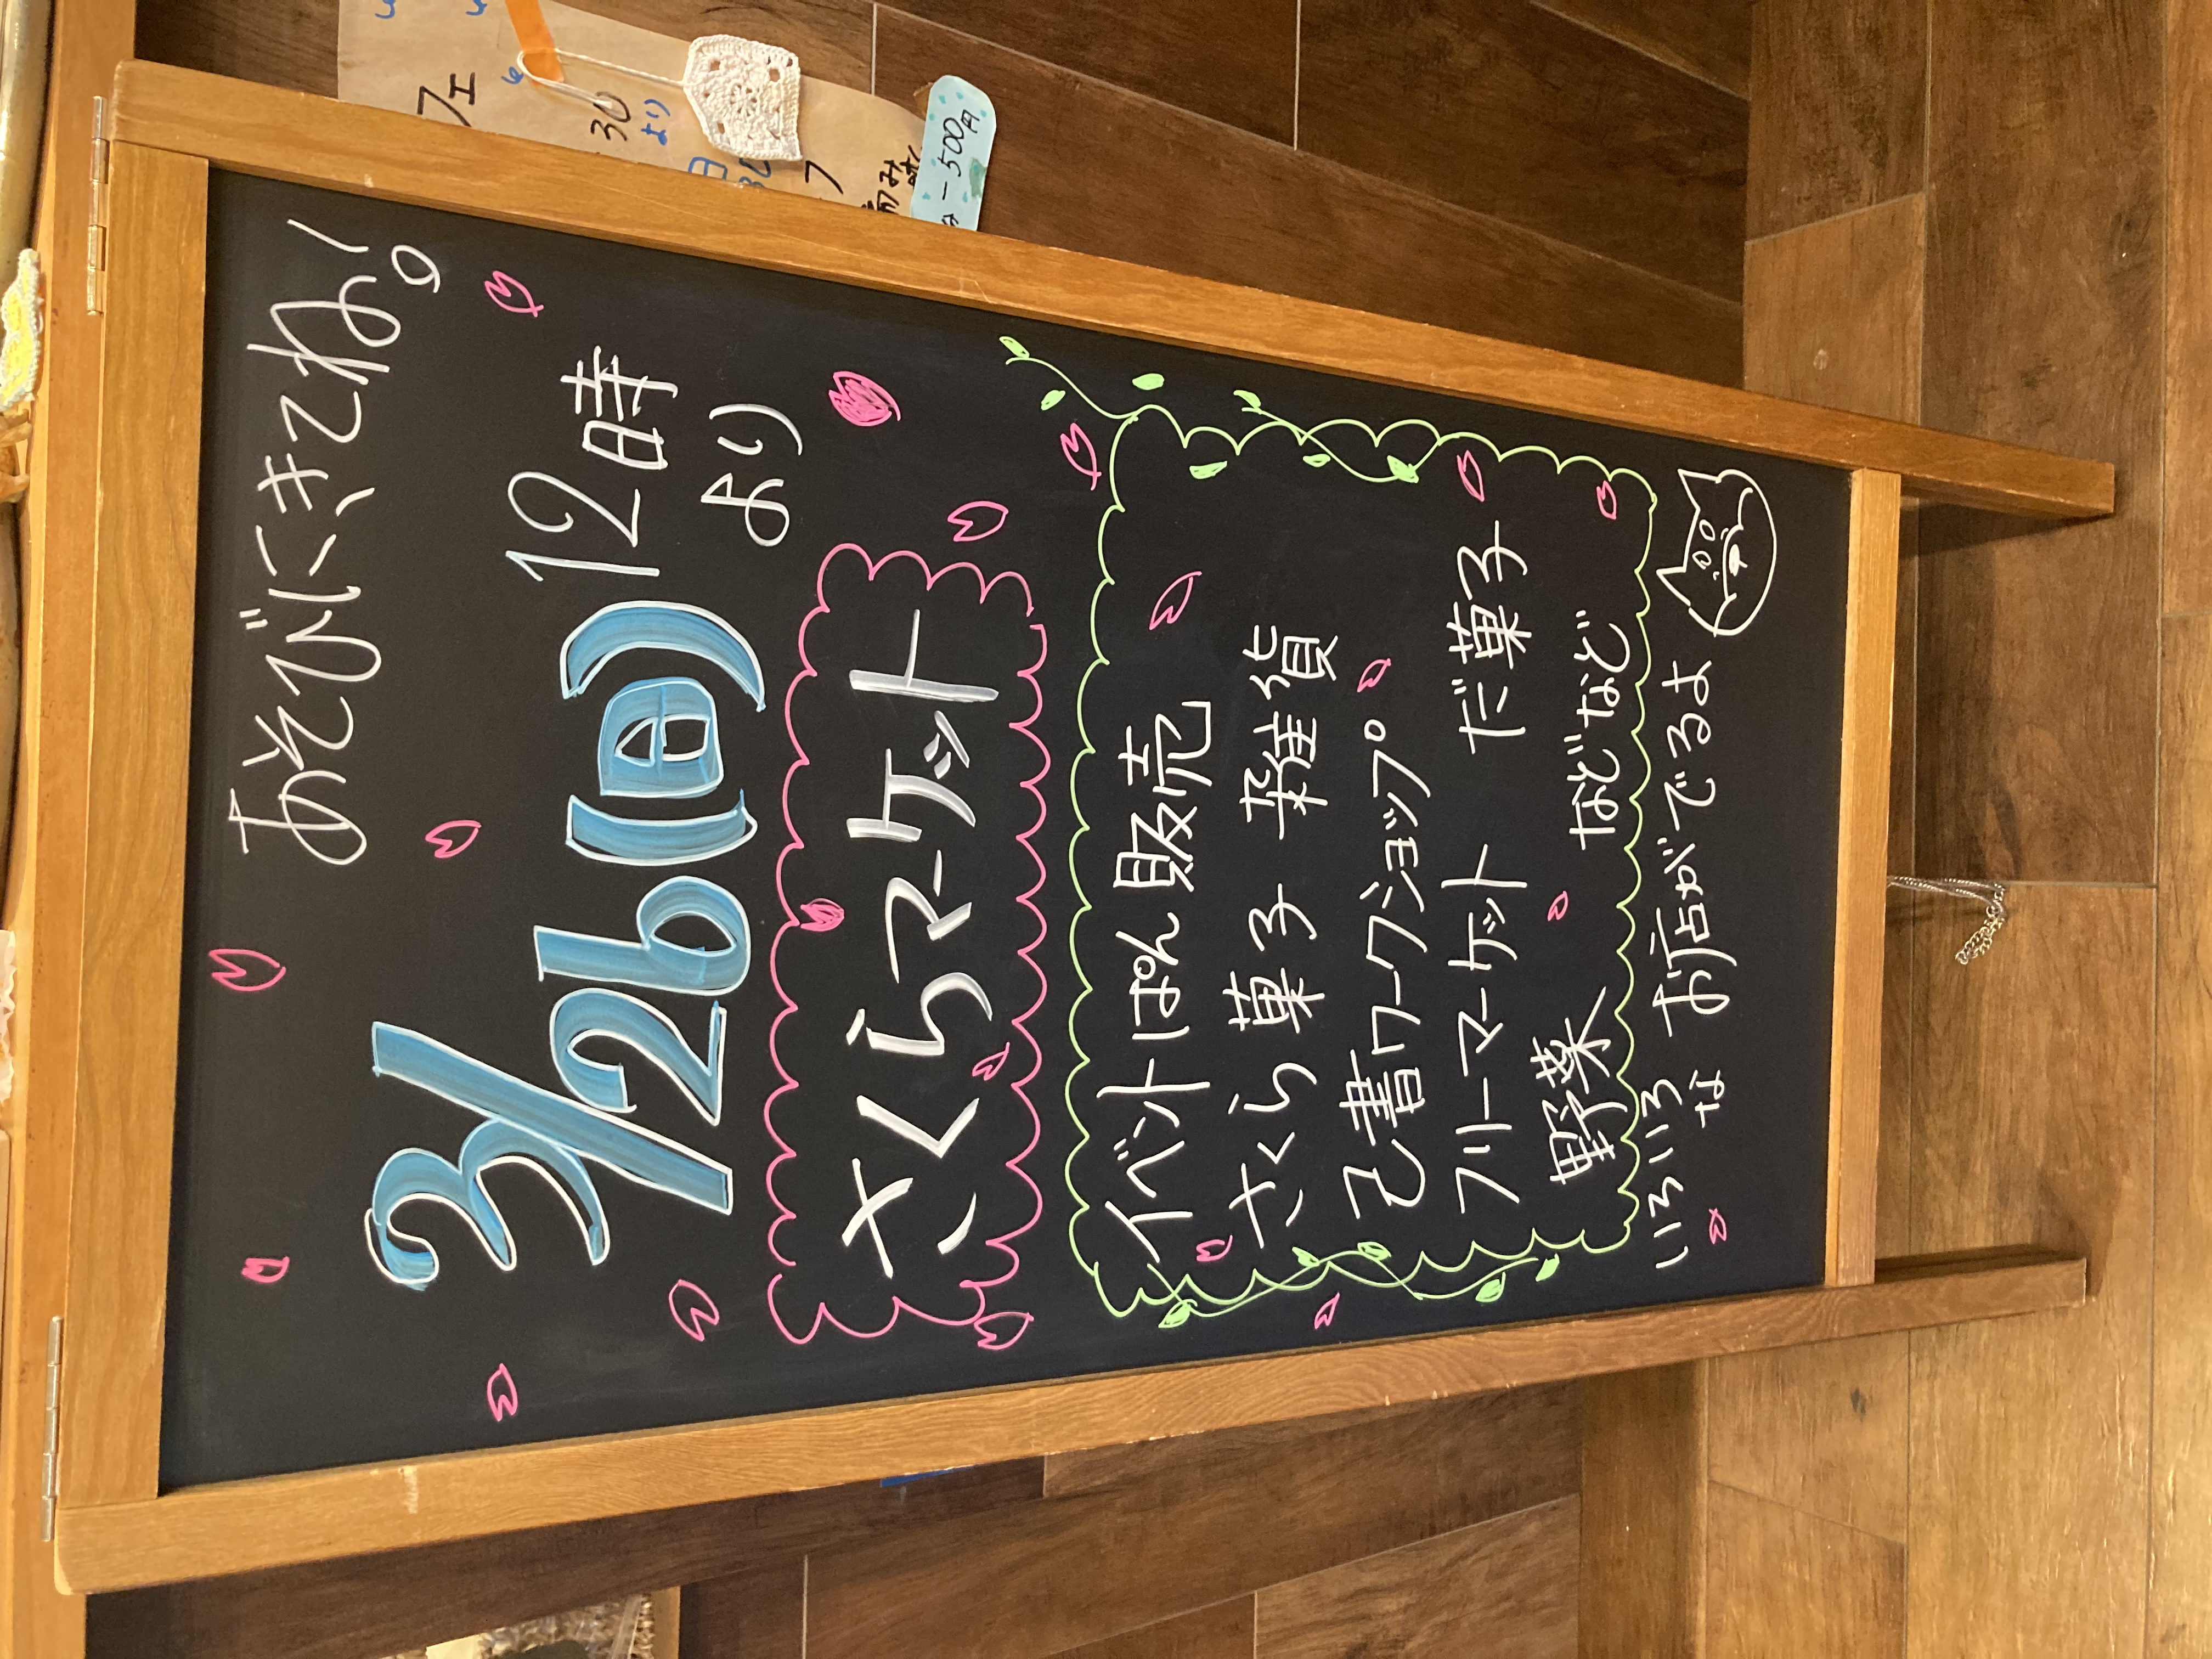 あそびにきてね!
3/26(日) 12時
より
さくらマーケット
イベントぱん販売
さくら菓子 雑貨
己書ワークショップ
フリーマーケット だ菓子
野菜 などなど
いろいろな お店がでるよ
フェ
30
より
500円